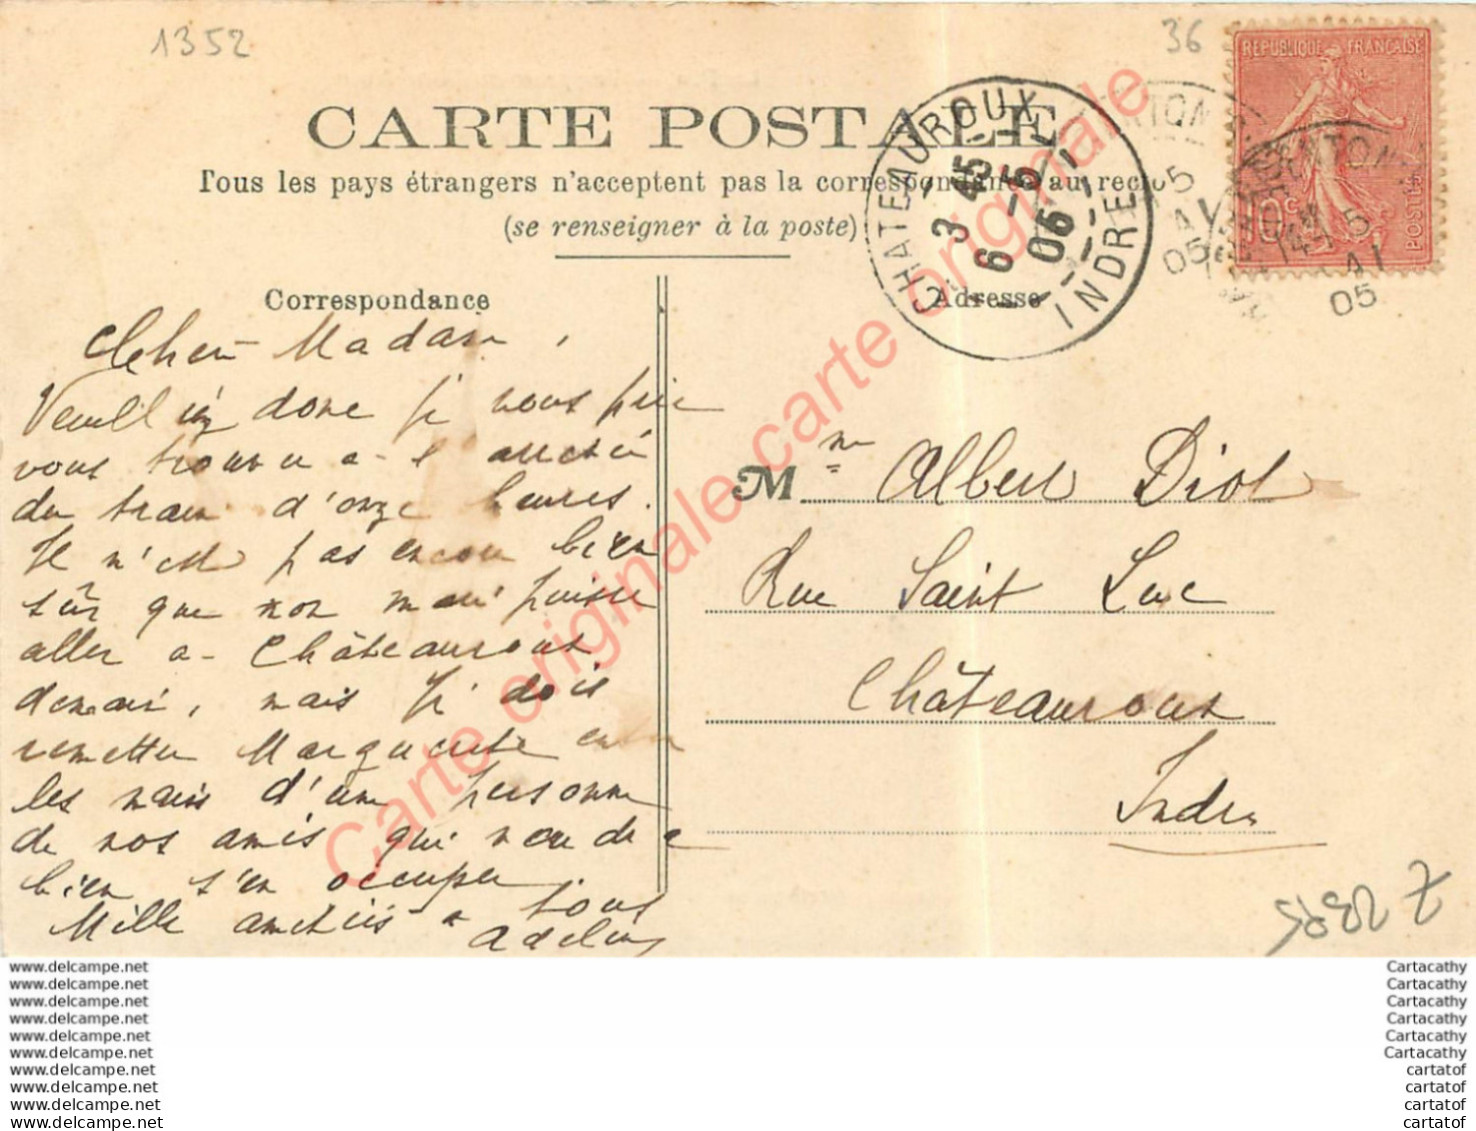 1352
36
REPUBLIQUE FRANÇAISE
10c
POSTES
CARTE POSTALE
Tous les pays étrangers n'acceptent pas la correspondance au recto
(se renseigner à la poste)
CHATEAUROUX
3 45
6 - 5
06
INDRE
5
05
14 5
05
Correspondance
Adresse
Chère Madame,
Veuillez donc je vous prie
vous trouver à l'arrivée
du train d'onze heures.
Il n'est pas encore bien
sûr que mon mari puisse
aller à Châteauroux
demain, mais je dois
remettre Marguerite entre
les mains d'une personne
de nos amis qui voudra
bien s'en occuper
Mille amitiés à tous
Adeline
Mme Albert Diot
Rue Saint Luc
Châteauroux
Indre
Carte originale carte originale carte originale
www.delcampe.net
www.delcampe.net
www.delcampe.net
www.delcampe.net
www.delcampe.net
www.delcampe.net
www.delcampe.net
www.delcampe.net
www.delcampe.net
www.delcampe.net
Cartacathy
Cartacathy
Cartacathy
Cartacathy
Cartacathy
Cartacathy
cartatof
cartatof
cartatof
cartatof